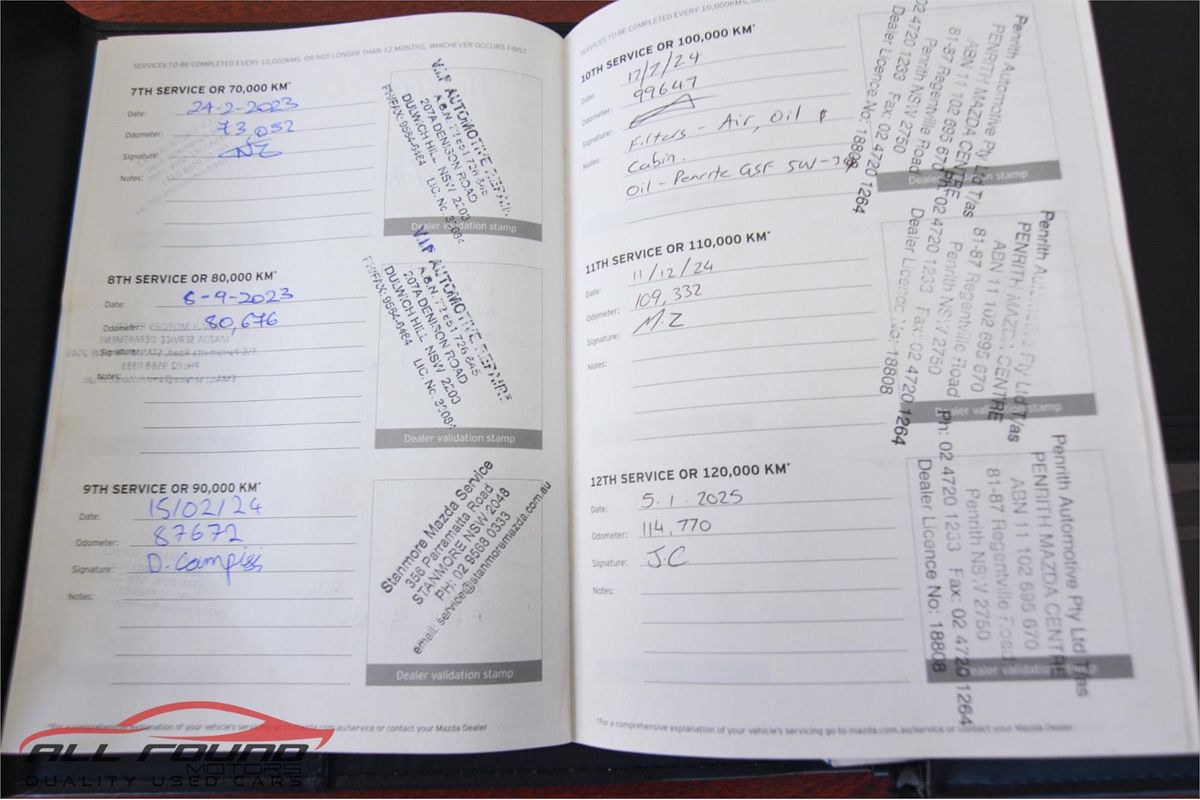 SERVICES TO BE COMPLETED EVERY 10,000KMS, OR NOT LONGER THAN 12 MONTHS, WHICHEVER OCCURS FIRST
7TH SERVICE OR 70,000 KM*
Date: 24-2-2023
Odometer: 73,052
Signature:
Notes:
V.I.P AUTOMOTIVE REPAIR
A.B.N.
207A DENISON ROAD
DULWICH HILL NSW 2203
Dealer validation stamp
8TH SERVICE OR 80,000 KM*
Date: 8-9-2023
Odometer: 80,676
Signature:
Notes:
V.I.P AUTOMOTIVE REPAIR
A.B.N.
207A DENISON ROAD
DULWICH HILL NSW 2203
Dealer validation stamp
9TH SERVICE OR 90,000 KM*
Date: 15/02/24
Odometer: 87672
Signature: D.
Notes:
Stanmore Mazda Service
356 Parramatta Road
STANMORE NSW 2048
PH: 02 9568 0333
email: service@stanmoremazda.com.au
Dealer validation stamp
*For a comprehensive explanation of your vehicle's servicing go to mazda.com.au/service or contact your Mazda Dealer
SERVICES TO BE COMPLETED EVERY 10,000KMS
10TH SERVICE OR 100,000 KM*
Date: /2/24
Odometer: 99647
Signature:
Notes: Filters - Air, Oil &
Cabin.
Oil - Penrite GSF 5W-30
Penrith Automotive Pty Ltd T/as
PENRITH MAZDA CENTRE
ABN 11 102 695 670
81-87 Regentville Road
Penrith NSW 2750
02 4720 1233 Fax: 02 4720 1264
Dealer Licence No: 18808
Dealer validation stamp
11TH SERVICE OR 110,000 KM*
Date: 11/12/24
Odometer: 109,332
Signature: M.Z
Notes:
Penrith Automotive Pty Ltd T/as
PENRITH MAZDA CENTRE
ABN 11 102 695 670
81-87 Regentville Road
Penrith NSW 2750
02 4720 1233 Fax: 02 4720 1264
Dealer Licence No: 18808
Dealer validation stamp
12TH SERVICE OR 120,000 KM*
Date: 5.1.2025
Odometer: 114,770
Signature: J.C
Notes:
Penrith Automotive Pty Ltd T/as
PENRITH MAZDA CENTRE
ABN 11 102 695 670
81-87 Regentville Road
Penrith NSW 2750
Ph: 02 4720 1233 Fax: 02 4720 1264
Dealer Licence No: 18808
Dealer validation stamp
*For a comprehensive explanation of your vehicle's servicing go to mazda.com.au/service or contact your Mazda Dealer
ALL ROUND
MOTORS
QUALITY USED CARS